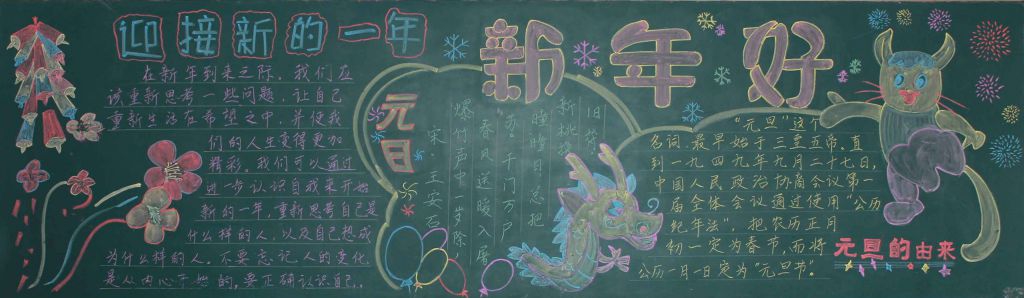 迎接新的一年
在新年到来之际，我们应
该重新思考一些问题，让自己
重新生活在希望之中，并使我
们的人生变得更加
精彩。我们可以通过
进一步认识自我来开始
新的一年，重新思考自己是
什么样的人，以及自己想成
为什么样的人。不要忘记人的变化
是从内心开始的，要正确认识自己。
新年好
元日
宋 王安石
爆竹声中一岁除
春风送暖入屠
苏 千门万户
曈曈日总把
新桃换
旧符
元旦的由来
"元旦"这个
名词，最早始于三皇五帝。直
到一九四九年九月二十七日，
中国人民政治协商会议第一
届全体会议通过使用"公历
纪年法"，把农历正月
初一定为春节，而将
公历一月一日定为"元旦节"。